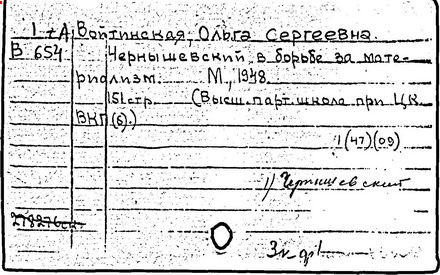 1 + А Войтинская, Ольга Сергеевна.
В 654 Чернышевский в борьбе за мате-
риализм. М., 1948.
151 стр. (Высш. парт. школа при ЦК
ВКП(б).)
1(47)(09)
1) Чернышевский
278276
3